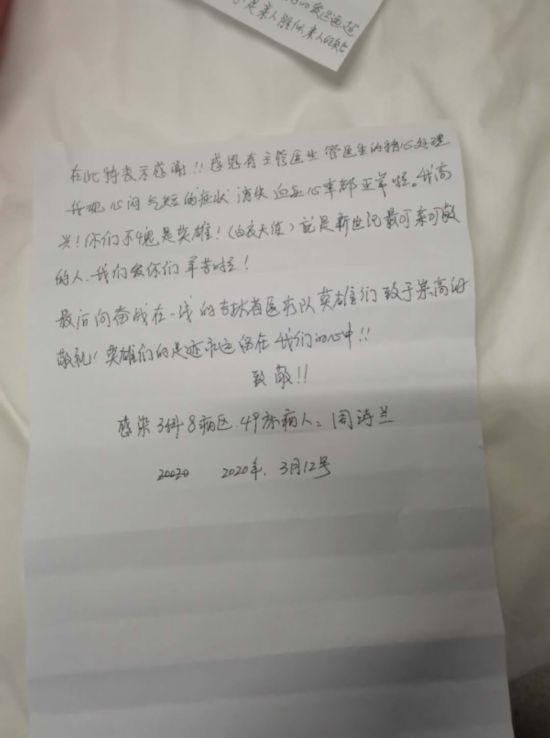 是亲人胜似亲人的
在此特表示感谢!!感恩有主管医生管医生的精心处理
我现心闷气短的症状消失血压心率都正常啦。我高
兴!你们不愧是英雄!(白衣天使)就是新世纪最可亲可敬
的人.我们爱你们辛苦啦!
最后向奋战在一线的吉林省医疗队英雄们致于崇高的
敬礼!英雄们的足迹永远留在我们的心中!!
致敬!!
感染3科8病区.49床病人:周涛兰
2020年.3月12号